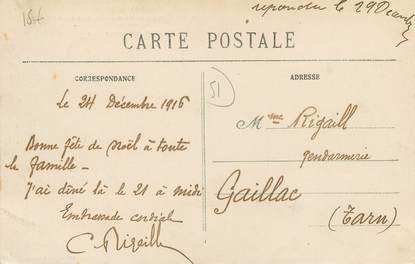 184
répondu le 29 Décembre
CARTE POSTALE
CORRESPONDANCE
ADRESSE
51
Le 24 Décembre 1916
Bonne fête de Noël à toute
la famille -
J'ai diné là le 21 à midi
Embrassade cordiale
C. Rigaill
Mme Rigaill
gendarmerie
Gaillac
(Tarn)